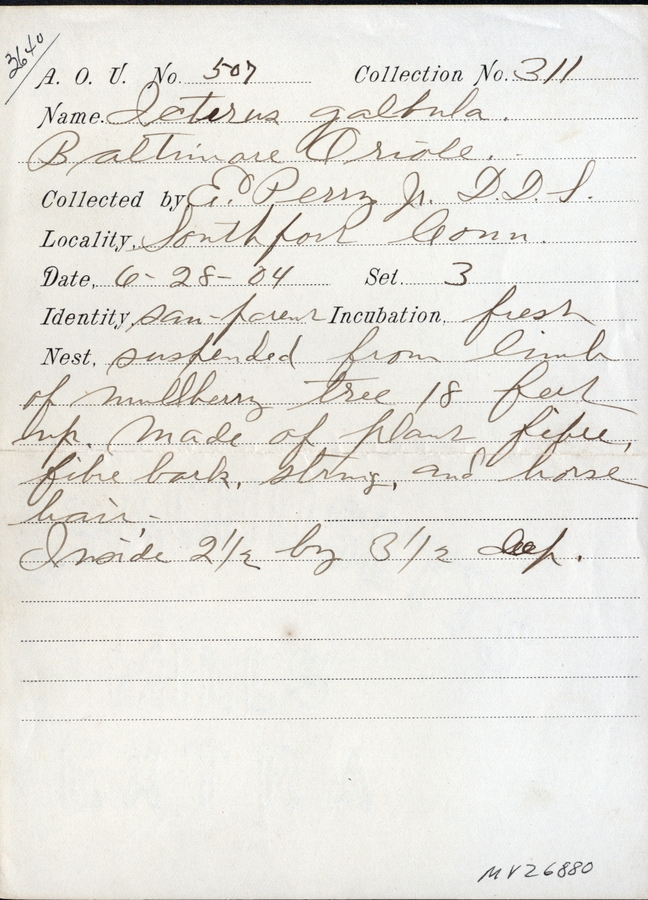 3640
A. O. U. No. 507 Collection No. 311
Name. Icterus galbula.
Baltimore Oriole.
Collected by Ed Perry Jr. D.D.S.
Locality, Southport Conn.
Date, 6-28-04 Set. 3
Identity, saw-parent Incubation, fresh
Nest, suspended from limb
of mullberry tree 18 feet
up. Made of plant fibre,
fibre bark, string, and horse
hair-
Inside 2 1/2 by 3 1/2 deep.
MVZ6880